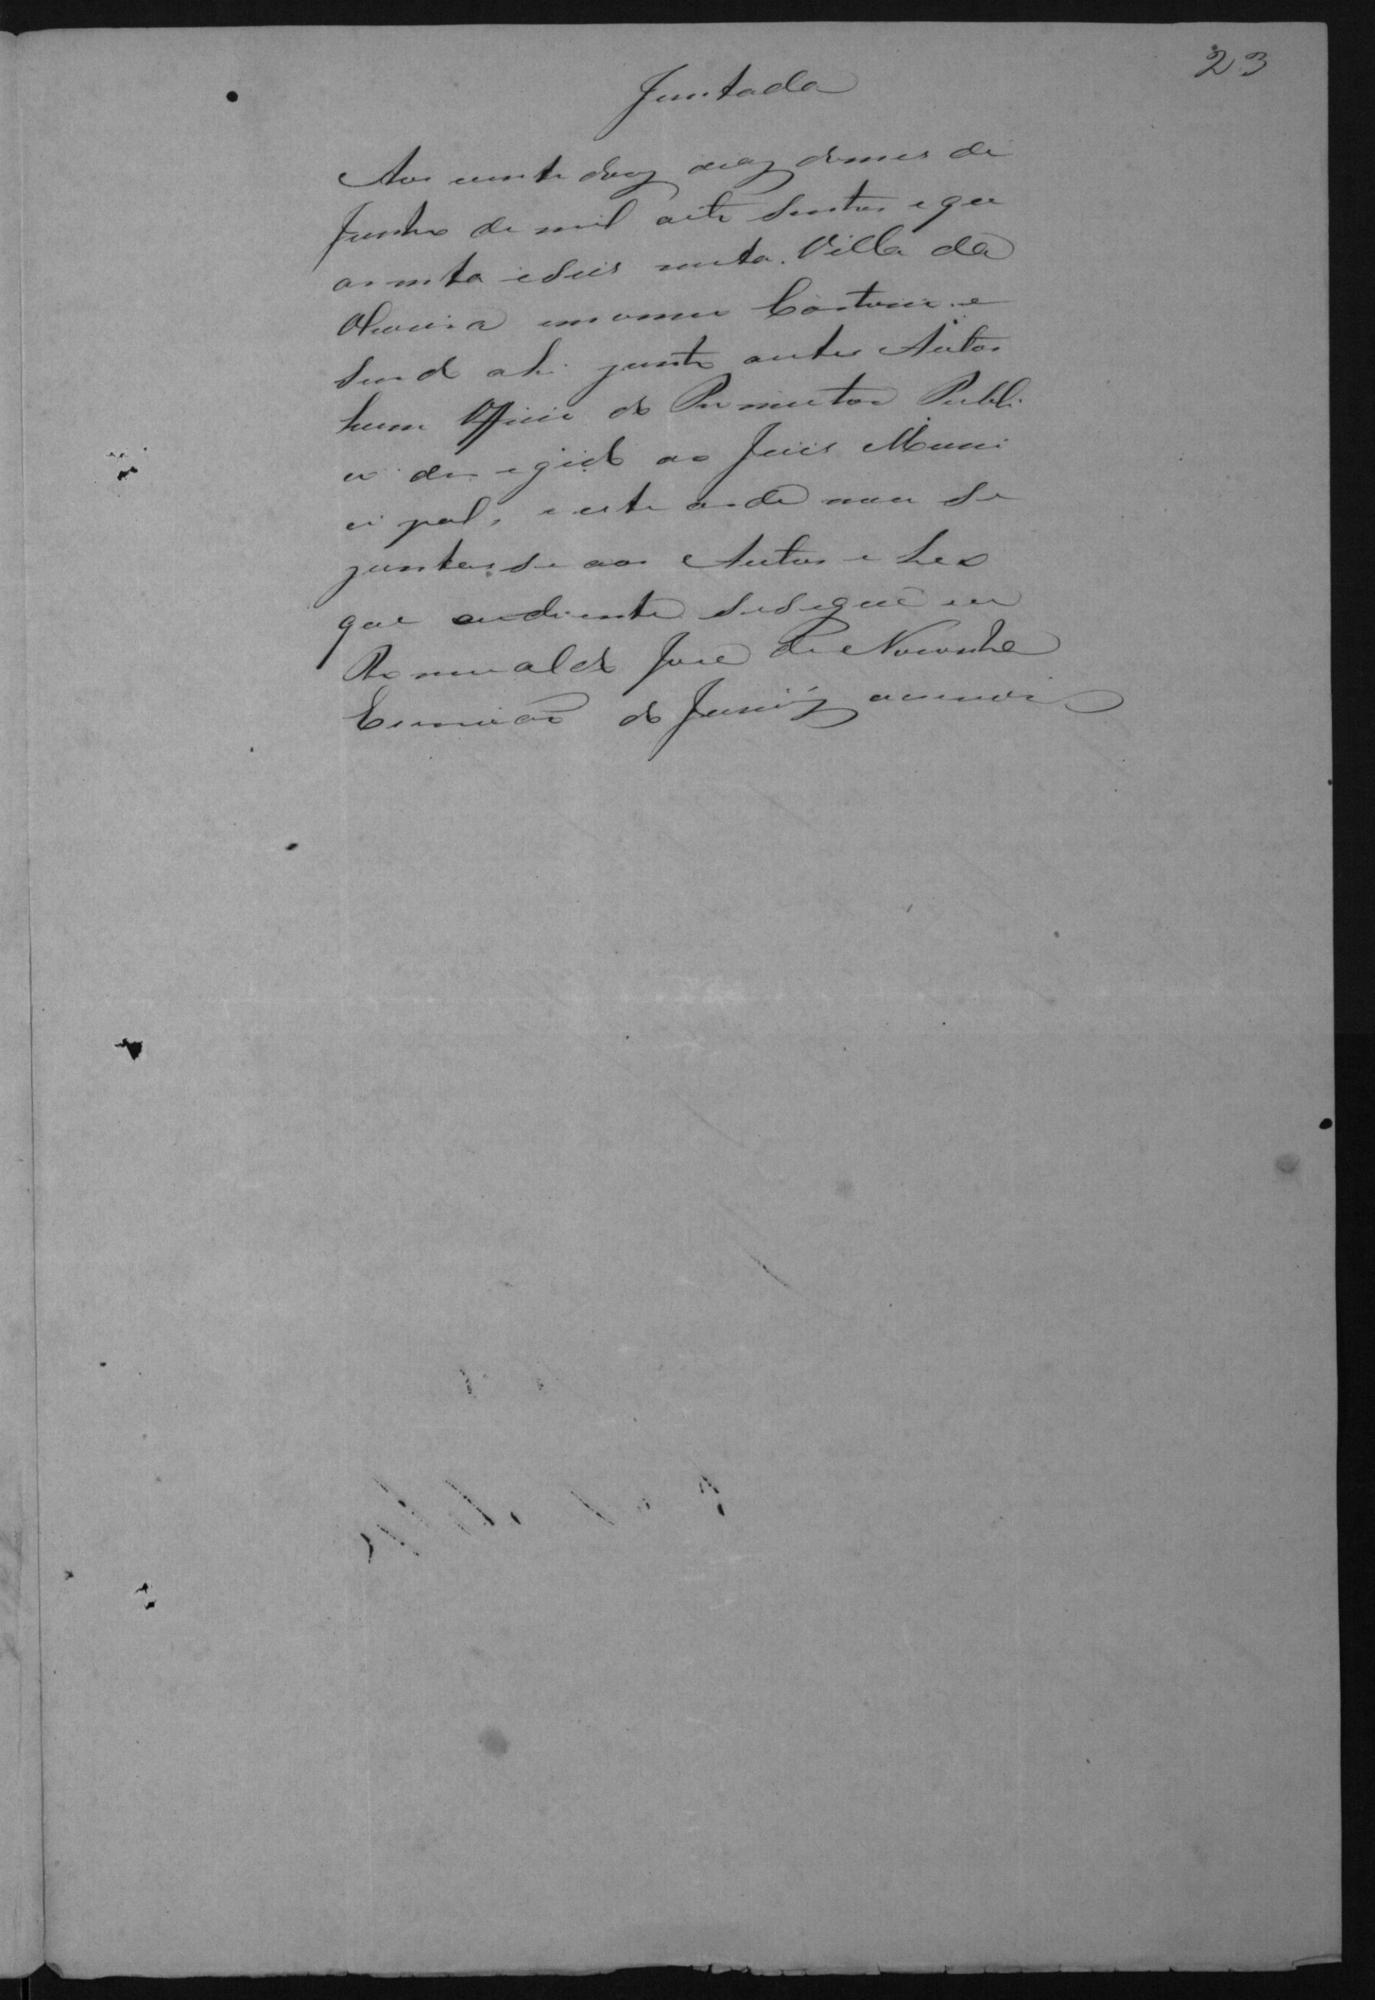 23
Juntada
Aos vinte doiz diaz domes de
Junho de mil oito sentos e qua
arenta eseis nesta Villa da
Oliveira em meu Cartorio e
sendo ahi junto autes Autos
hum Officio do Promutor Publi
co deregido ao Juis Muni
cipal, e este ordenou se
juntase aos Autos e he o
que aodiente sesegue eu
Romualdo José de
Escrivão do Juri q escrevi